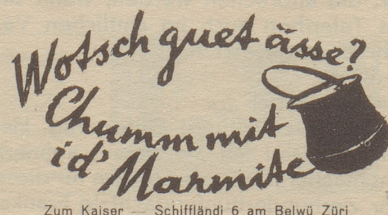 Wotsch guet ässe?
Chumm mit
id' Marmite
Zum Kaiser — Schiffländi 6 am Belwü Züri